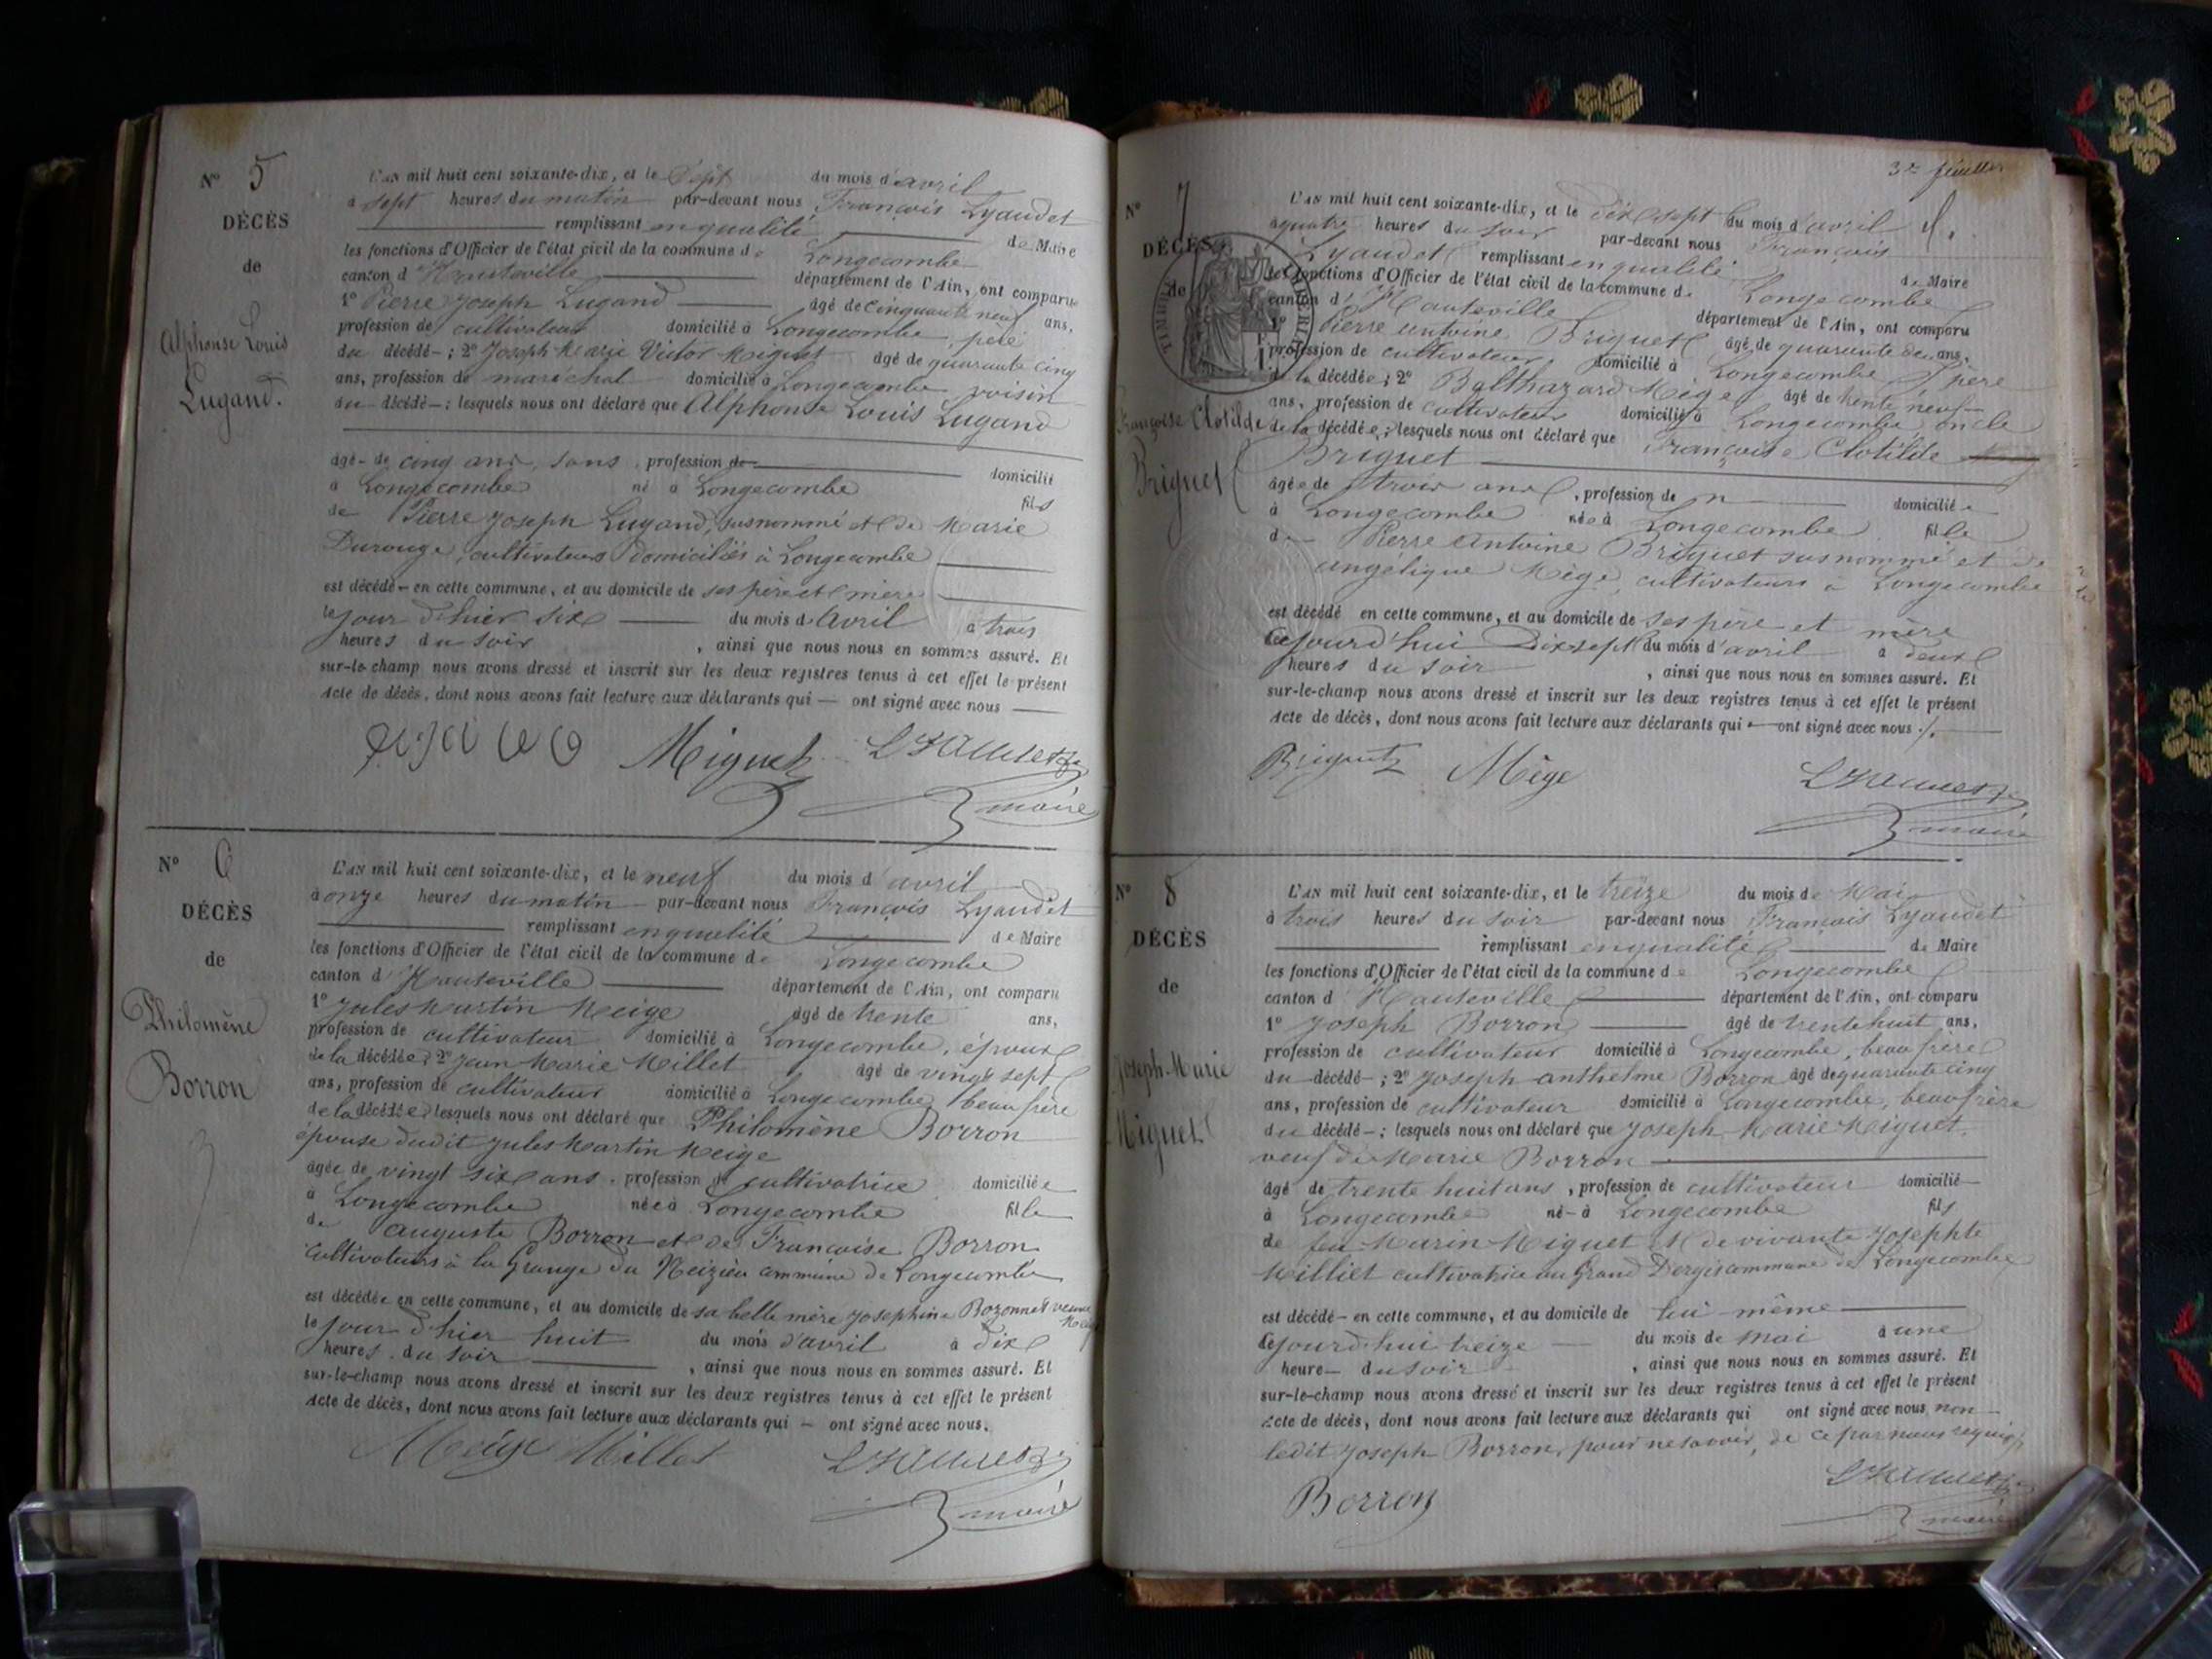 N° 5
DÉCÈS
de
Alphonse Louis
Lugand.
L'AN mil huit cent soixante-dix, et le Sept du mois d'avril
à sept heures du matin par-devant nous François Lyaudet
remplissant en qualité de Maire
les fonctions d'Officier de l'état civil de la commune de Longecombe
canton d'Hauteville département de l'Ain, ont comparu
1° Pierre Joseph Lugand âgé de cinquante neuf ans,
profession de cultivateur domicilié à Longecombe, père
du décédé ; 2° Joseph Marie Victor Miguet âgé de quarante cinq
ans, profession de maréchal domicilié à Longecombe voisin
du décédé ; lesquels nous ont déclaré que Alphonse Louis Lugand
âgé de cinq ans, sans profession de domicilié
à Longecombe né à Longecombe fils
de Pierre Joseph Lugand, susnommé et de Marie
Durouge, cultivateurs domiciliés à Longecombe
est décédé en cette commune, et au domicile de ses père et mère
le jour d'hier six du mois d'avril à trois
heures du soir , ainsi que nous nous en sommes assuré. Et
sur-le-champ nous avons dressé et inscrit sur les deux registres tenus à cet effet le présent
Acte de décès, dont nous avons fait lecture aux déclarants qui ont signé avec nous
Miguet
maire
N° 6
DÉCÈS
de
Philomène
Borron
L'AN mil huit cent soixante-dix, et le neuf du mois d'avril
à onze heures du matin par-devant nous François Lyaudet
remplissant en qualité de Maire
les fonctions d'Officier de l'état civil de la commune de Longecombe
canton d'Hauteville département de l'Ain, ont comparu
1° Jules Martin Meige âgé de trente ans,
profession de cultivateur domicilié à Longecombe, époux
de la décédée ; 2° Jean Marie Millet âgé de vingt sept
ans, profession de cultivateur domicilié à Longecombe beau frère
de la décédée lesquels nous ont déclaré que Philomène Borron
épouse dudit Jules Martin Meige
âgée de vingt six ans, profession de cultivatrice domiciliée
à Longecombe née à Longecombe fille
de Auguste Borron et de Françoise Borron
cultivateurs à la Grange du commune de Longecombe
est décédée en cette commune, et au domicile de sa belle mère Josephine Bozonnet veuve
Meige
le jour d'hier huit du mois d'avril à dix
heures du soir , ainsi que nous nous en sommes assuré. Et
sur-le-champ nous avons dressé et inscrit sur les deux registres tenus à cet effet le présent
Acte de décès, dont nous avons fait lecture aux déclarants qui – ont signé avec nous.
Meige Millet
maire
3e feuillet
N° 7
DÉCÈS
de
Françoise Clotilde
Briguet
L'AN mil huit cent soixante-dix, et le dix sept du mois d'avril
à quatre heures du soir par-devant nous François
Lyaudet remplissant en qualité de Maire
les fonctions d'Officier de l'état civil de la commune de Longecombe
canton d'Hauteville département de l'Ain, ont comparu
1° Pierre Antoine Briguet âgé de quarante deux ans,
profession de cultivateur domicilié à Longecombe, père
de la décédée ; 2° Balthazard Mège âgé de trente neuf
ans, profession de cultivateur domicilié à Longecombe oncle
de la décédée ; lesquels nous ont déclaré que Françoise Clotilde
Briguet
âgée de trois ans, profession de domiciliée
à Longecombe née à Longecombe fille
de Pierre Antoine Briguet susnommé et de
Angelique Mège, cultivateurs à Longecombe
est décédé en cette commune, et au domicile de ses père et mère
Cejourd'hui Dix sept du mois d'avril à deux
heures du soir , ainsi que nous nous en sommes assuré. Et
sur-le-champ nous avons dressé et inscrit sur les deux registres tenus à cet effet le présent
Acte de décès, dont nous avons fait lecture aux déclarants qui ont signé avec nous ./.
Briguet Mège
maire
N° 8
DÉCÈS
de
Joseph-Marie
Miguet
L'AN mil huit cent soixante-dix, et le treize du mois de Mai
à trois heures du soir par-devant nous François Lyaudet
remplissant en qualité de Maire
les fonctions d'Officier de l'état civil de la commune de Longecombe
canton d'Hauteville département de l'Ain, ont comparu
1° Joseph Borron âgé de trente huit ans,
profession de cultivateur domicilié à Longecombe, beau frère
du décédé ; 2° Joseph Anthelme Borron âgé de quarante cinq
ans, profession de cultivateur domicilié à Longecombe, beau frère
du décédé ; lesquels nous ont déclaré que Joseph Marie Miguet
veuf de Marie Borron
âgé de trente huit ans, profession de cultivateur domicilié
à Longecombe né à Longecombe fils
de feu Marin Miguet et de vivante Josephte
Milliet cultivatrice au Grand Dergis commune de Longecombe
est décédé en cette commune, et au domicile de lui même
Cejourd'hui treize du mois de mai à une
heure du soir , ainsi que nous nous en sommes assuré. Et
sur-le-champ nous avons dressé et inscrit sur les deux registres tenus à cet effet le présent
Acte de décès, dont nous avons fait lecture aux déclarants qui ont signé avec nous, non
ledit Joseph Borron pour ne savoir, de ce par nous requis
Borron
maire